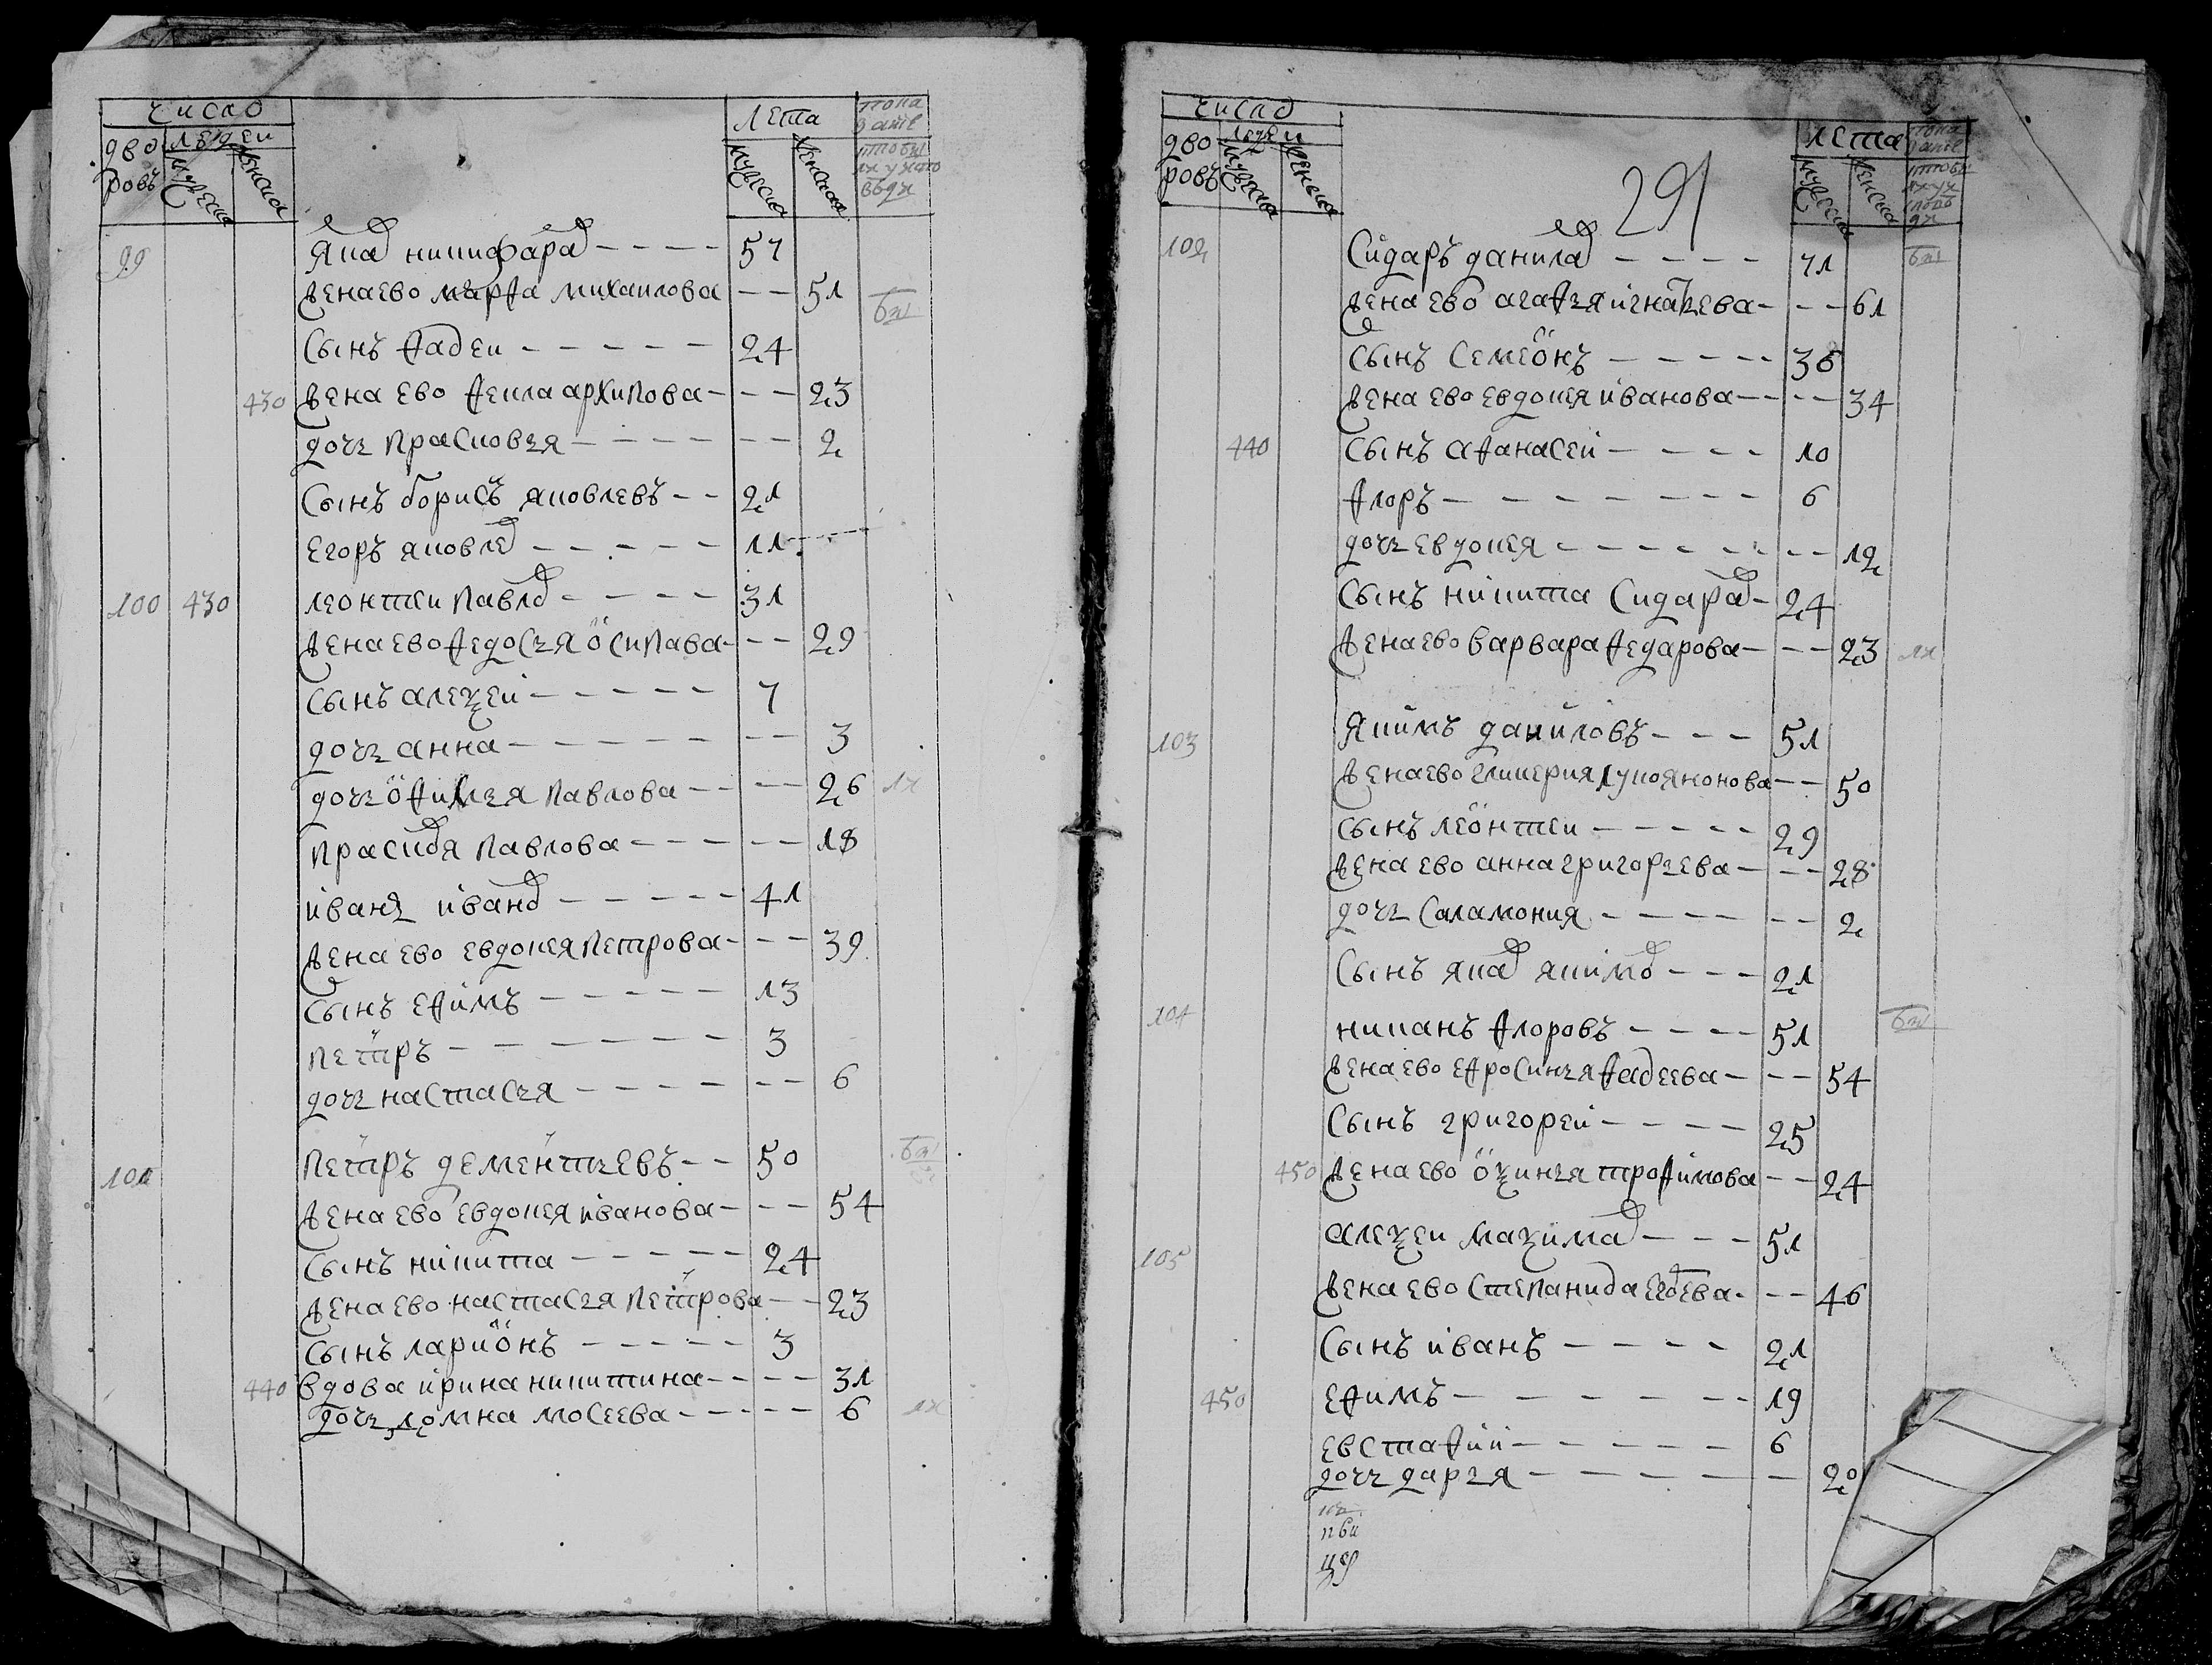 Число
дво ровъ
людей
мужеска
женска
лета
мужеска
женска
99 Яков никифаров 57
жена ево марфа михаилова 51
сынъ фадеи 24
430 жена ево фекла архипова 23
дочь прасковья 2
сынъ борисъ яковлевъ 21
егоръ яковлев 11
100 430 леонтеи павлов 31
жена ево федосья осипава 29
сынъ алеѯеи 7
дочь анна 3
дочь офимья павлова 26
прасковя павлова 18
иванъ иванов 41
жена ево евдокея петрова 39
сынъ ефимъ 13
петръ 3
дочь настасья 6
101 петръ дементьевъ 50
жена ево евдокея иванова 54
сынъ никита 24
жена ево настасья петрова 23
сынъ ларионъ 3
440 вдова ирина никитина 31
дочь домна мосеева 6
Число
дво ровъ
людеи
мужеска
женска
лета
мужеска
женска
291
102 Сидаръ данилав 71
жена ево агафья игнатьева 61
сынъ семеонъ 36
жена ево евдокея иванова 34
440 сынъ афанасеи 10
флоръ 6
дочь евдокея 12
сынъ никита сидаров 24
жена ево варвара федарова 23
103 Якимъ даниловъ 51
жена ево гликерия лукояно­нова 50
сынъ леонтеи 29
жена ево анна григорьева 28
дочь саламония 2
сынъ яков якимов 21
104 никанъ флоровъ 51
жена ево ефросинья фадеева 54
сынъ григореи 25
450 жена ево оѯинья трофимова 24
105 алеѯеи маѯимав 51
жена ево степанида егоева 46
сынъ иванъ 21
450 ефимъ 19
евстафии 6
дочь дарья 20